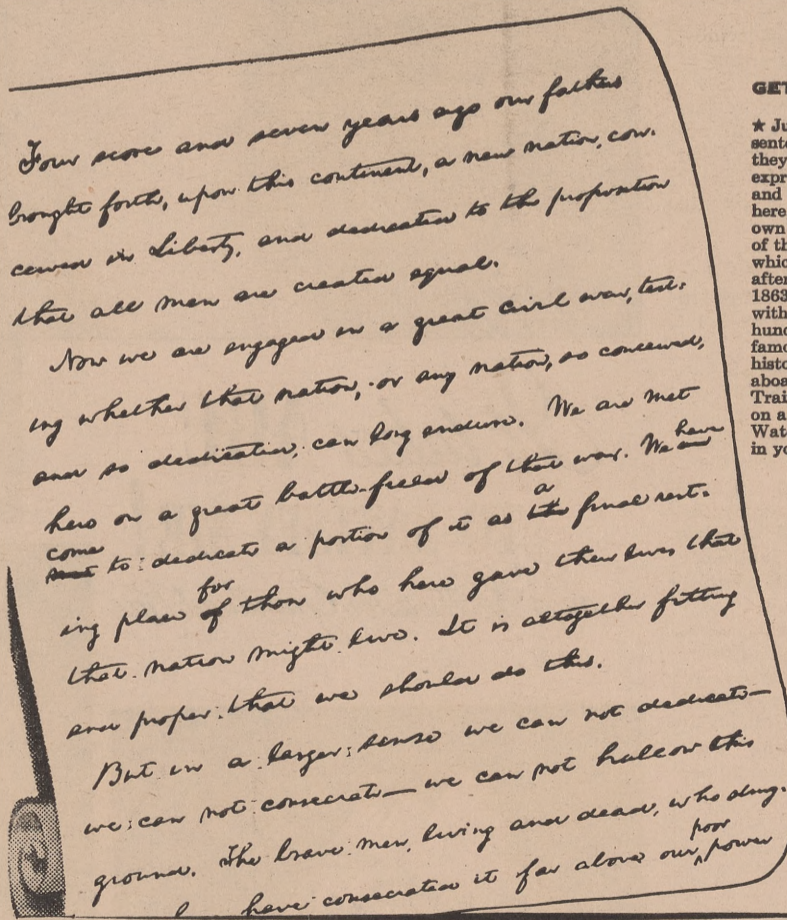 Four score and seven years ago our fathers
brought forth, upon this continent, a new nation, con-
ceived in Liberty, and dedicated to the proposition
that all men are created equal.
Now we are engaged in a great civil war, test-
ing whether that nation, or any nation, so conceived,
and so dedicated, can long endure. We are met
have
here on a great battle-field of that war. We are
come a
met to dedicate a portion of it as the final rest-
for
ing place of those who here gave their lives that
that nation might live. It is altogether fitting
and proper that we should do this.
But in a larger sense we can not dedicate—
we can not consecrate— we can not hallow this
ground. The brave men, living and dead, who strug-
poor
have consecrated it far above our power
GET
★ Ju
sente
they
expr
and
here
own
of th
whic
after
1863
with
hund
famo
histo
aboa
Trai
on a
Wat
in yo